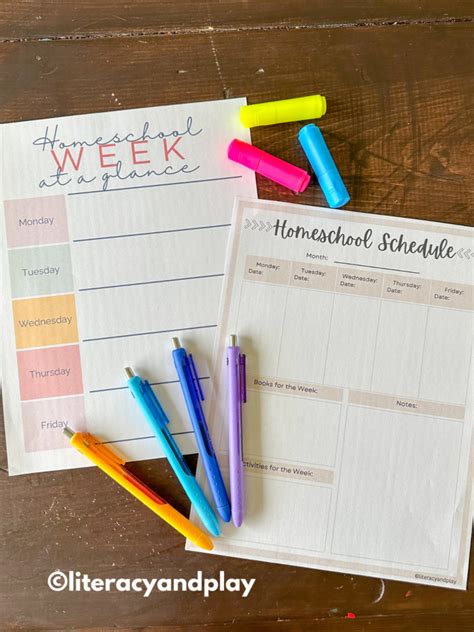 Homeschool
WEEK
at a glance
Monday
Tuesday
Wednesday
Thursday
Friday
Homeschool Schedule
Month:
Monday: Tuesday: Wednesday: Thursday: Friday:
Date: Date: Date: Date: Date:
Books for the Week:
Notes:
Activities for the Week:
@literacyandplay
©literacyandplay